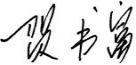 段书富